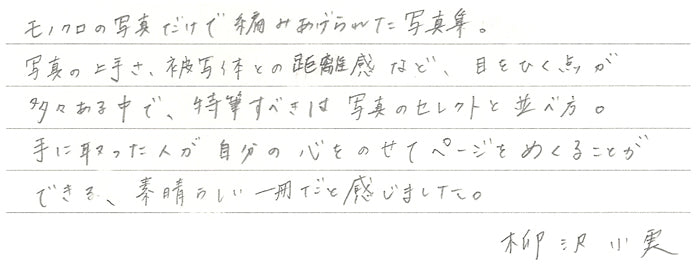 モノクロの写真だけで編みあげられた写真集。
写真の上手さ、被写体との距離感など、目をひく点が
多々ある中で、特筆すべきは写真のセレクトと並べ方。
手に取った人が自分の心をのせてページをめくることが
できる、素晴らしい一冊だと感じました。
柳沢小実